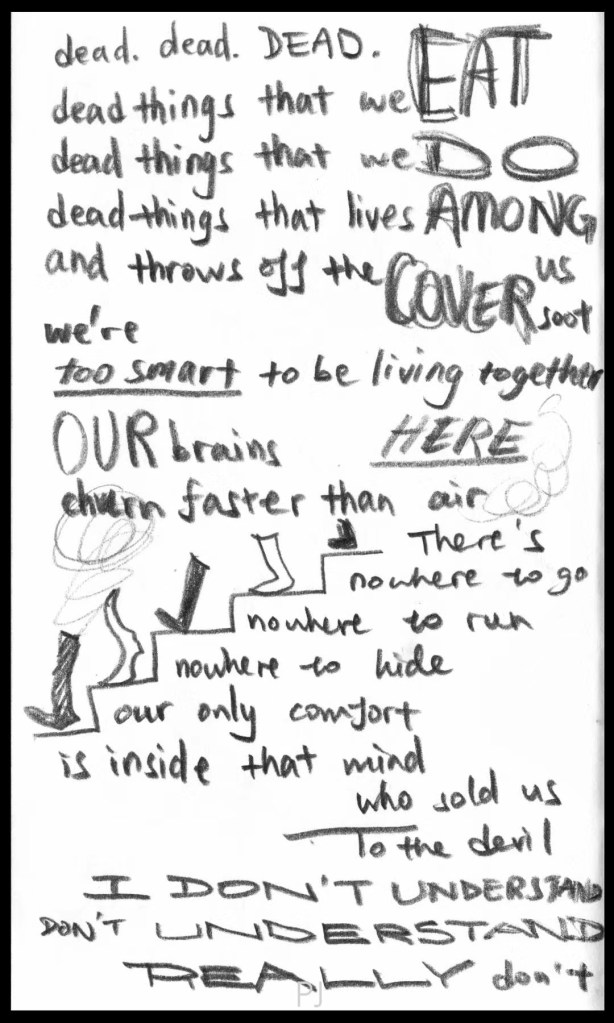 dead. dead. DEAD.
dead things that we EAT
dead things that we DO
dead things that lives AMONG
and throws off the COVER us
we're soot
too smart to be living together
OUR brains HERE
churn faster than air
There's
nowhere to go
nowhere to run
nowhere to hide
our only comfort
is inside that mind
who sold us
To the devil
I DON'T UNDERSTAND
DON'T UNDERSTAND
REALLY don't
PJ